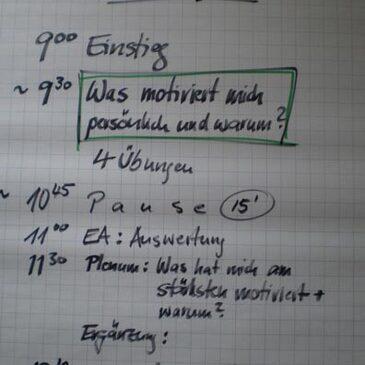 9⁰⁰ Einstieg
~ 9³⁰ Was motiviert mich
persönlich und warum?
4 Übungen
~ 10⁴⁵ Pause 15'
11⁰⁰ EA: Auswertung
11³⁰ Plenum: Was hat mich am
stärksten motiviert +
warum?
Ergänzung: